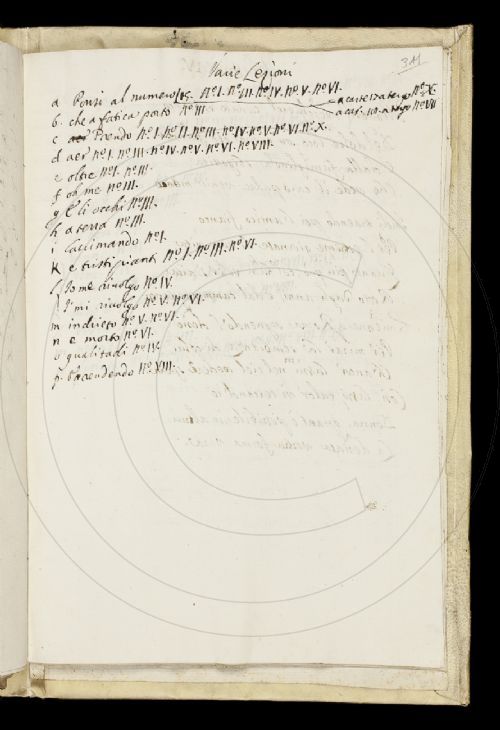 Varie Lezioni
341
a Ponsi al numero 15. N.º I. N.º III. N.º IV. N.º V. N.º VI. a carte 17 a tergo N.º X.
b. che a fatica porto N.º III. a car. 10. a tergo N.º VII
c aer Prendo N.º I. N.º II. N.º III. N.º IV. N.º V. N.º VI. N.º X.
d aer N.º I. N.º III. N.º IV. N.º V. N.º VI. N.º VIII.
e oltre N.º I. N.º III.
f oh me N.º III.
g E li occhi N.º III.
h a terra N.º III.
i lacrimando N.º I.
K e tristi pianti N.º I. N.º III. N.º VI.
l Io me rivolgo N.º IV.
l I' mi rivolgo N.º V. N.º VI.
m indrieto N.º V. N.º VI.
n e morto N.º VI.
o qualitadi N.º IV.
p. N.º VIII.